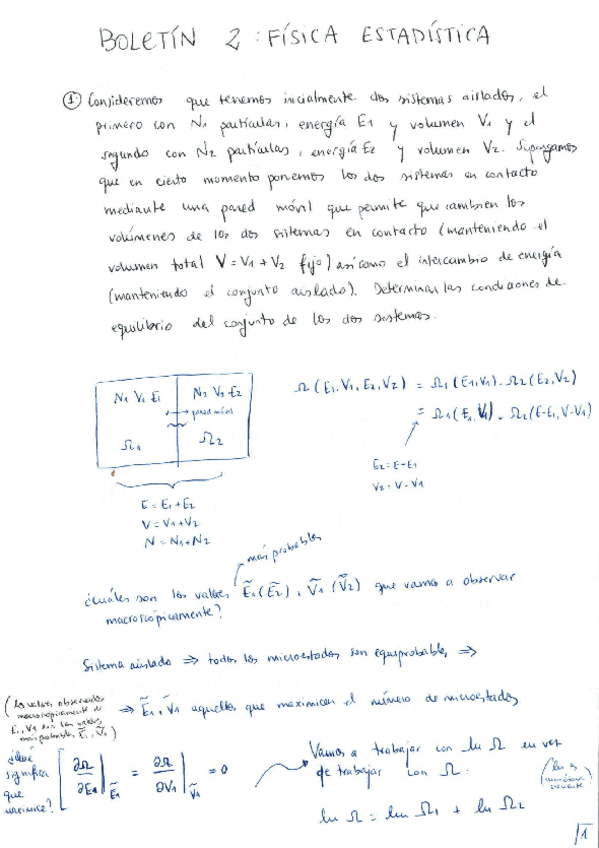 BOLETÍN 2: FÍSICA ESTADÍSTICA
① Consideremos que tenemos inicialmente dos sistemas aislados, el
primero con N1 partículas, energía E1 y volumen V1 y el
segundo con N2 partículas, energía E2 y volumen V2. Supongamos
que en cierto momento ponemos los dos sistemas en contacto
mediante una pared móvil que permite que cambien los
volúmenes de los dos sistemas en contacto (manteniendo el
volumen total V = V1 + V2 fijo) así como el intercambio de energía
(manteniendo el conjunto aislado). Determinar las condiciones de
equilibrio del conjunto de los dos sistemas.
N1 V1 E1
N2 V2 E2
pared móvil
Ω1
Ω2
E = E1 + E2
V = V1 + V2
N = N1 + N2
Ω (E1, V1, E2, V2) = Ω1 (E1, V1) · Ω2 (E2, V2)
= Ω1 (E1, V1) · Ω2 (E-E1, V-V1)
E2 = E - E1
V2 = V - V1
más probables
¿cuáles son los valores Ẽ1 (Ẽ2), Ṽ1 (Ṽ2) que vamos a observar
macroscópicamente?
Sistema aislado ⇒ todos los microestados son equiprobables, ⇒
(los valores observados
macroscópicamente de
E1, V1 son los valores
más probables Ẽ1, Ṽ1)
⇒ Ẽ1, Ṽ1 aquellos que maximicen el número de microestados
¿qué
significa
que
maximice?
[ ∂Ω/∂E1 |Ẽ1 = ∂Ω/∂V1 |Ṽ1 = 0
Vamos a trabajar con ln Ω en vez
de trabajar con Ω:
(ln es
creciente)
ln Ω = ln Ω1 + ln Ω2
1